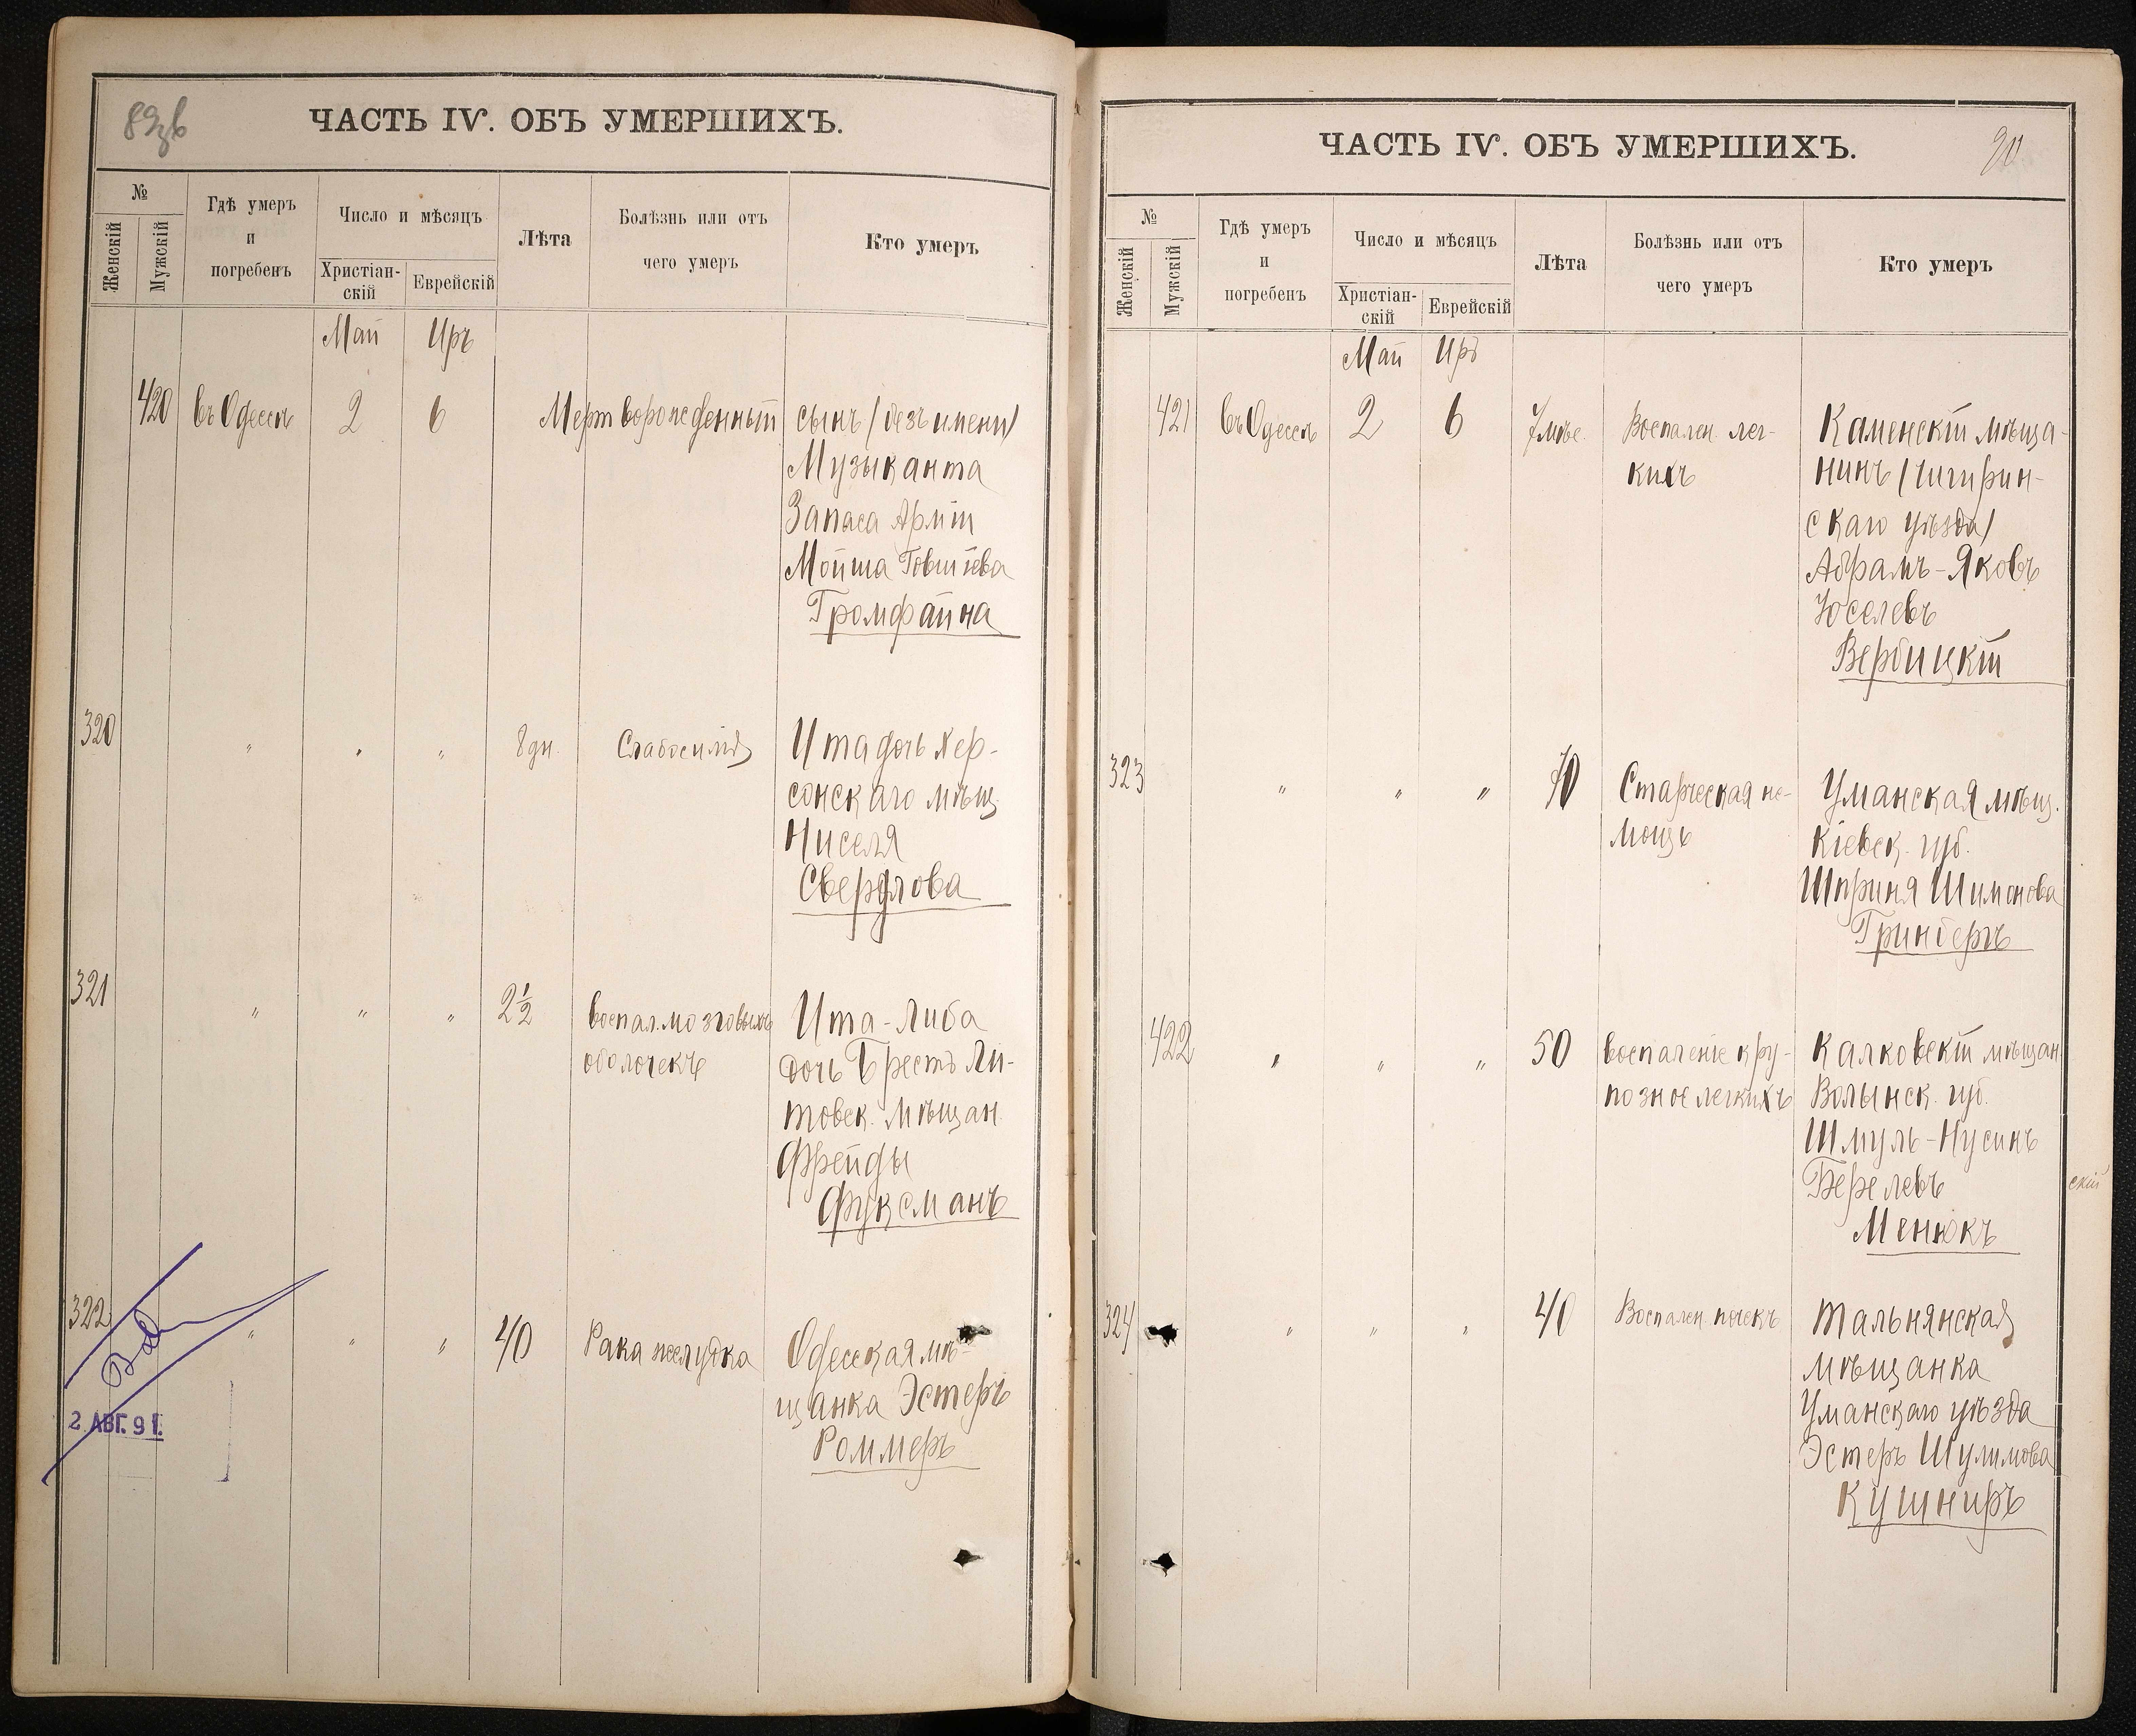 ЧАСТЬ IV. ОБЪ УМЕРШИХЪ.
№
Женскій
Мужскій
Гдѣ умеръ
и
погребенъ
Число и мѣсяцъ
Христіан-
скій
Еврейскій
Лѣта
Болѣзнь или отъ
чего умеръ
Кто умеръ
Май Иръ
420 въ Одессѣ 2 6 Мертворожденный сынъ (безъ имени)
Музыканта
Запаса Арміи
Мойша Говшіева
Громфайна
320 " " " 8 дн. Слабосилія Ита дочь Хер-
сонскаго мѣщ.
Ниселя
Свердлова
321 " " " 2½ воспал. мозговыхъ Ита-Либа
оболочекъ дочь Брестъ Ли-
товск. мѣщан.
Фрейды
Фуксманъ
322 " " " 40 Рака желудка Одесская мѣ-
щанка Эстеръ
Роммеръ
2. АВГ. 91.
ЧАСТЬ IV. ОБЪ УМЕРШИХЪ.
90
№
Женскій
Мужскій
Гдѣ умеръ
и
погребенъ
Число и мѣсяцъ
Христіан-
скій
Еврейскій
Лѣта
Болѣзнь или отъ
чего умеръ
Кто умеръ
Май Иръ
421 въ Одессѣ 2 6 7 мѣс. Воспален. лег- Каменскій мѣща-
кихъ нинъ (Чигирин-
скаго уѣзда)
Абрамъ-Яковъ
Юселевъ
Вербицкій
323 " " " 70 Старческая не- Уманская мѣщ.
мощь Кіевск. губ.
Шприня Шимонова
Гринберъ
422 " " " 50 воспаленіе кру- Калковскій мѣщан.
позное легкихъ Волынск. губ.
Шмуль-Нусинъ
Берелевъ
скій
Менюкъ
324 " " " 40 Воспален. почекъ Тальнянская
мѣщанка
Уманскаго уѣзда
Эстеръ Шулимова
Кушниръ